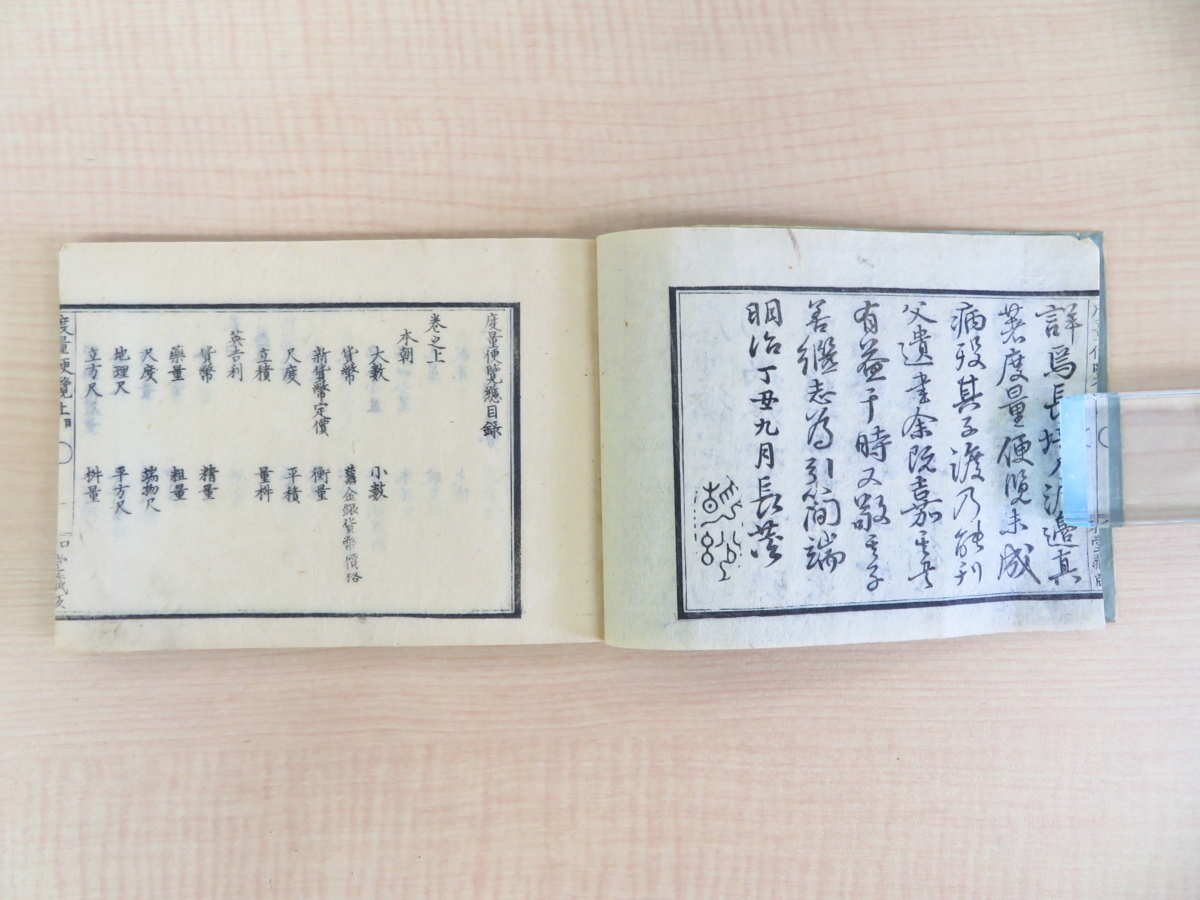 詳焉長埼人渡邉真
著度量便覧未成
病歿其子渡乃能刊
父遺書余既嘉其書
有益于時又敬其子
善繼志為引簡端
明治丁丑九月長茨
度量便覧總目録
卷之上
本朝
大數 小數
貨幣 舊金銀貨幣價格
新貨幣定價 衡量
尺度 平積
立積 量桝
英吉利
貨幣 精量
藥量 粗量
尺度 端物尺
地理尺 平方尺
立方尺 桝量
度量便覧上